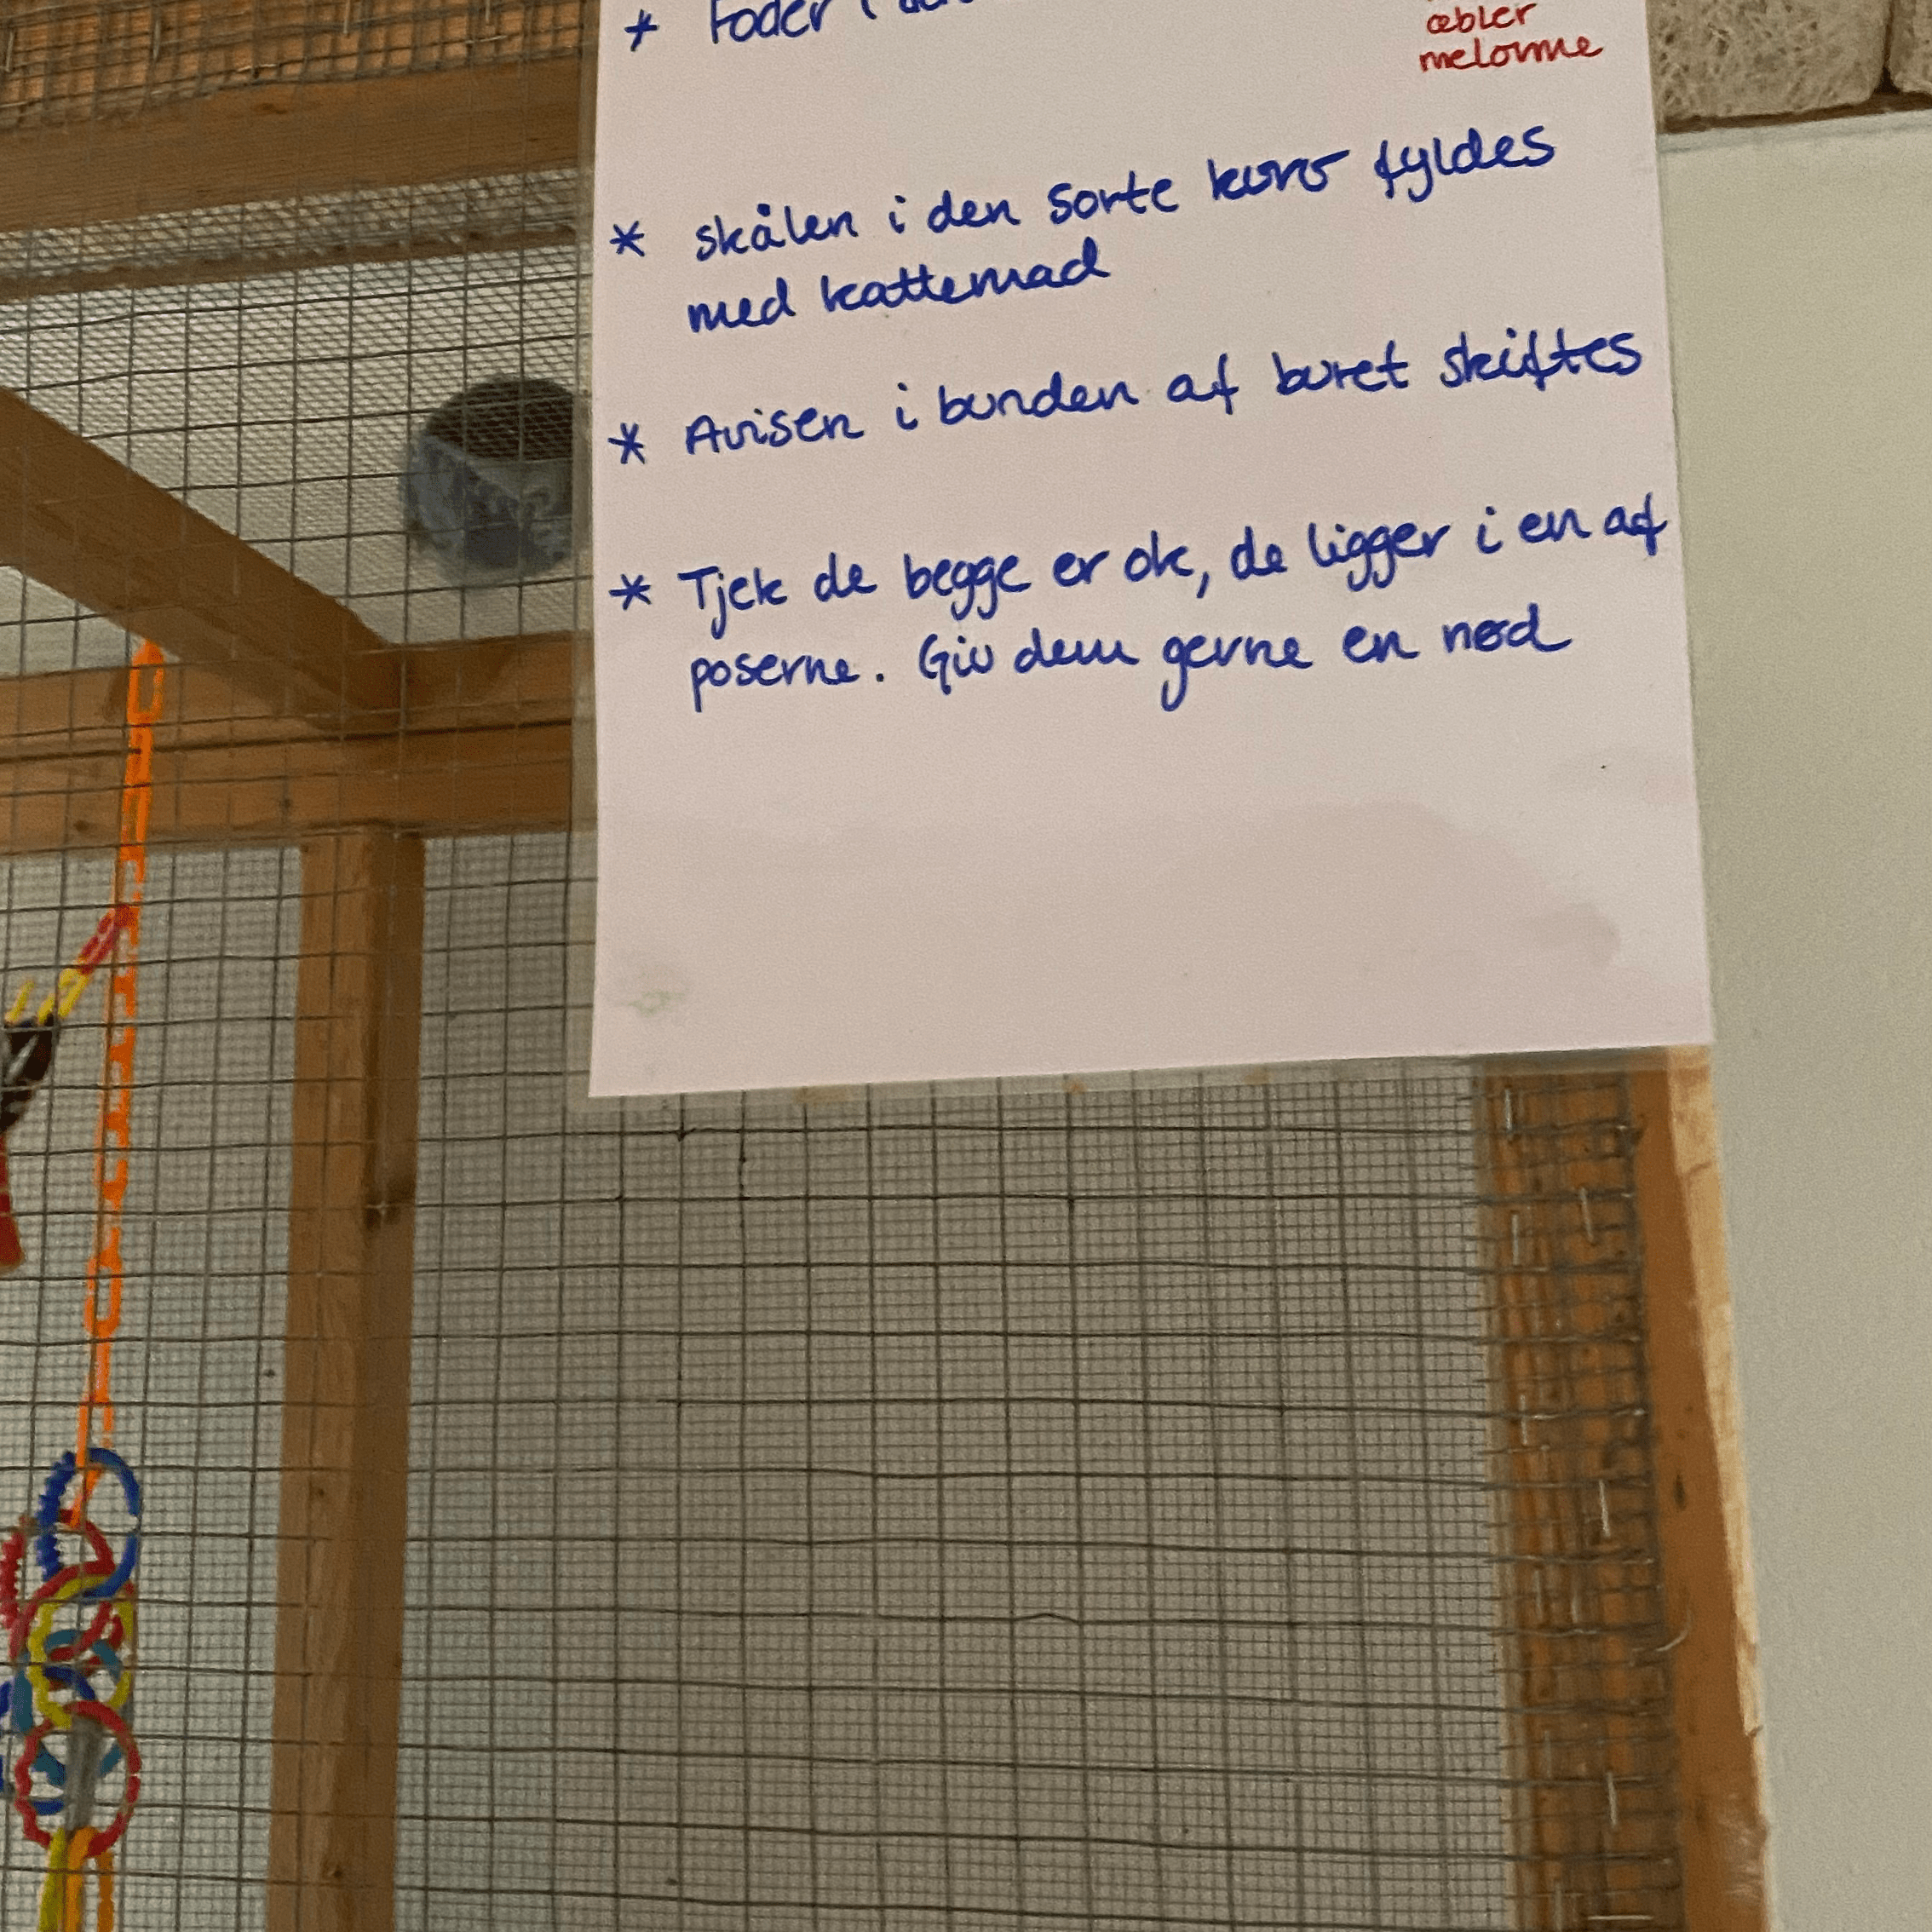 * Foder i
æbler
melorme
* skålen i den sorte kurv fyldes
med kattemad
* Avisen i bunden af buret skiftes
* Tjek de begge er ok, de ligger i en af
poserne. Giv dem gerne en nød